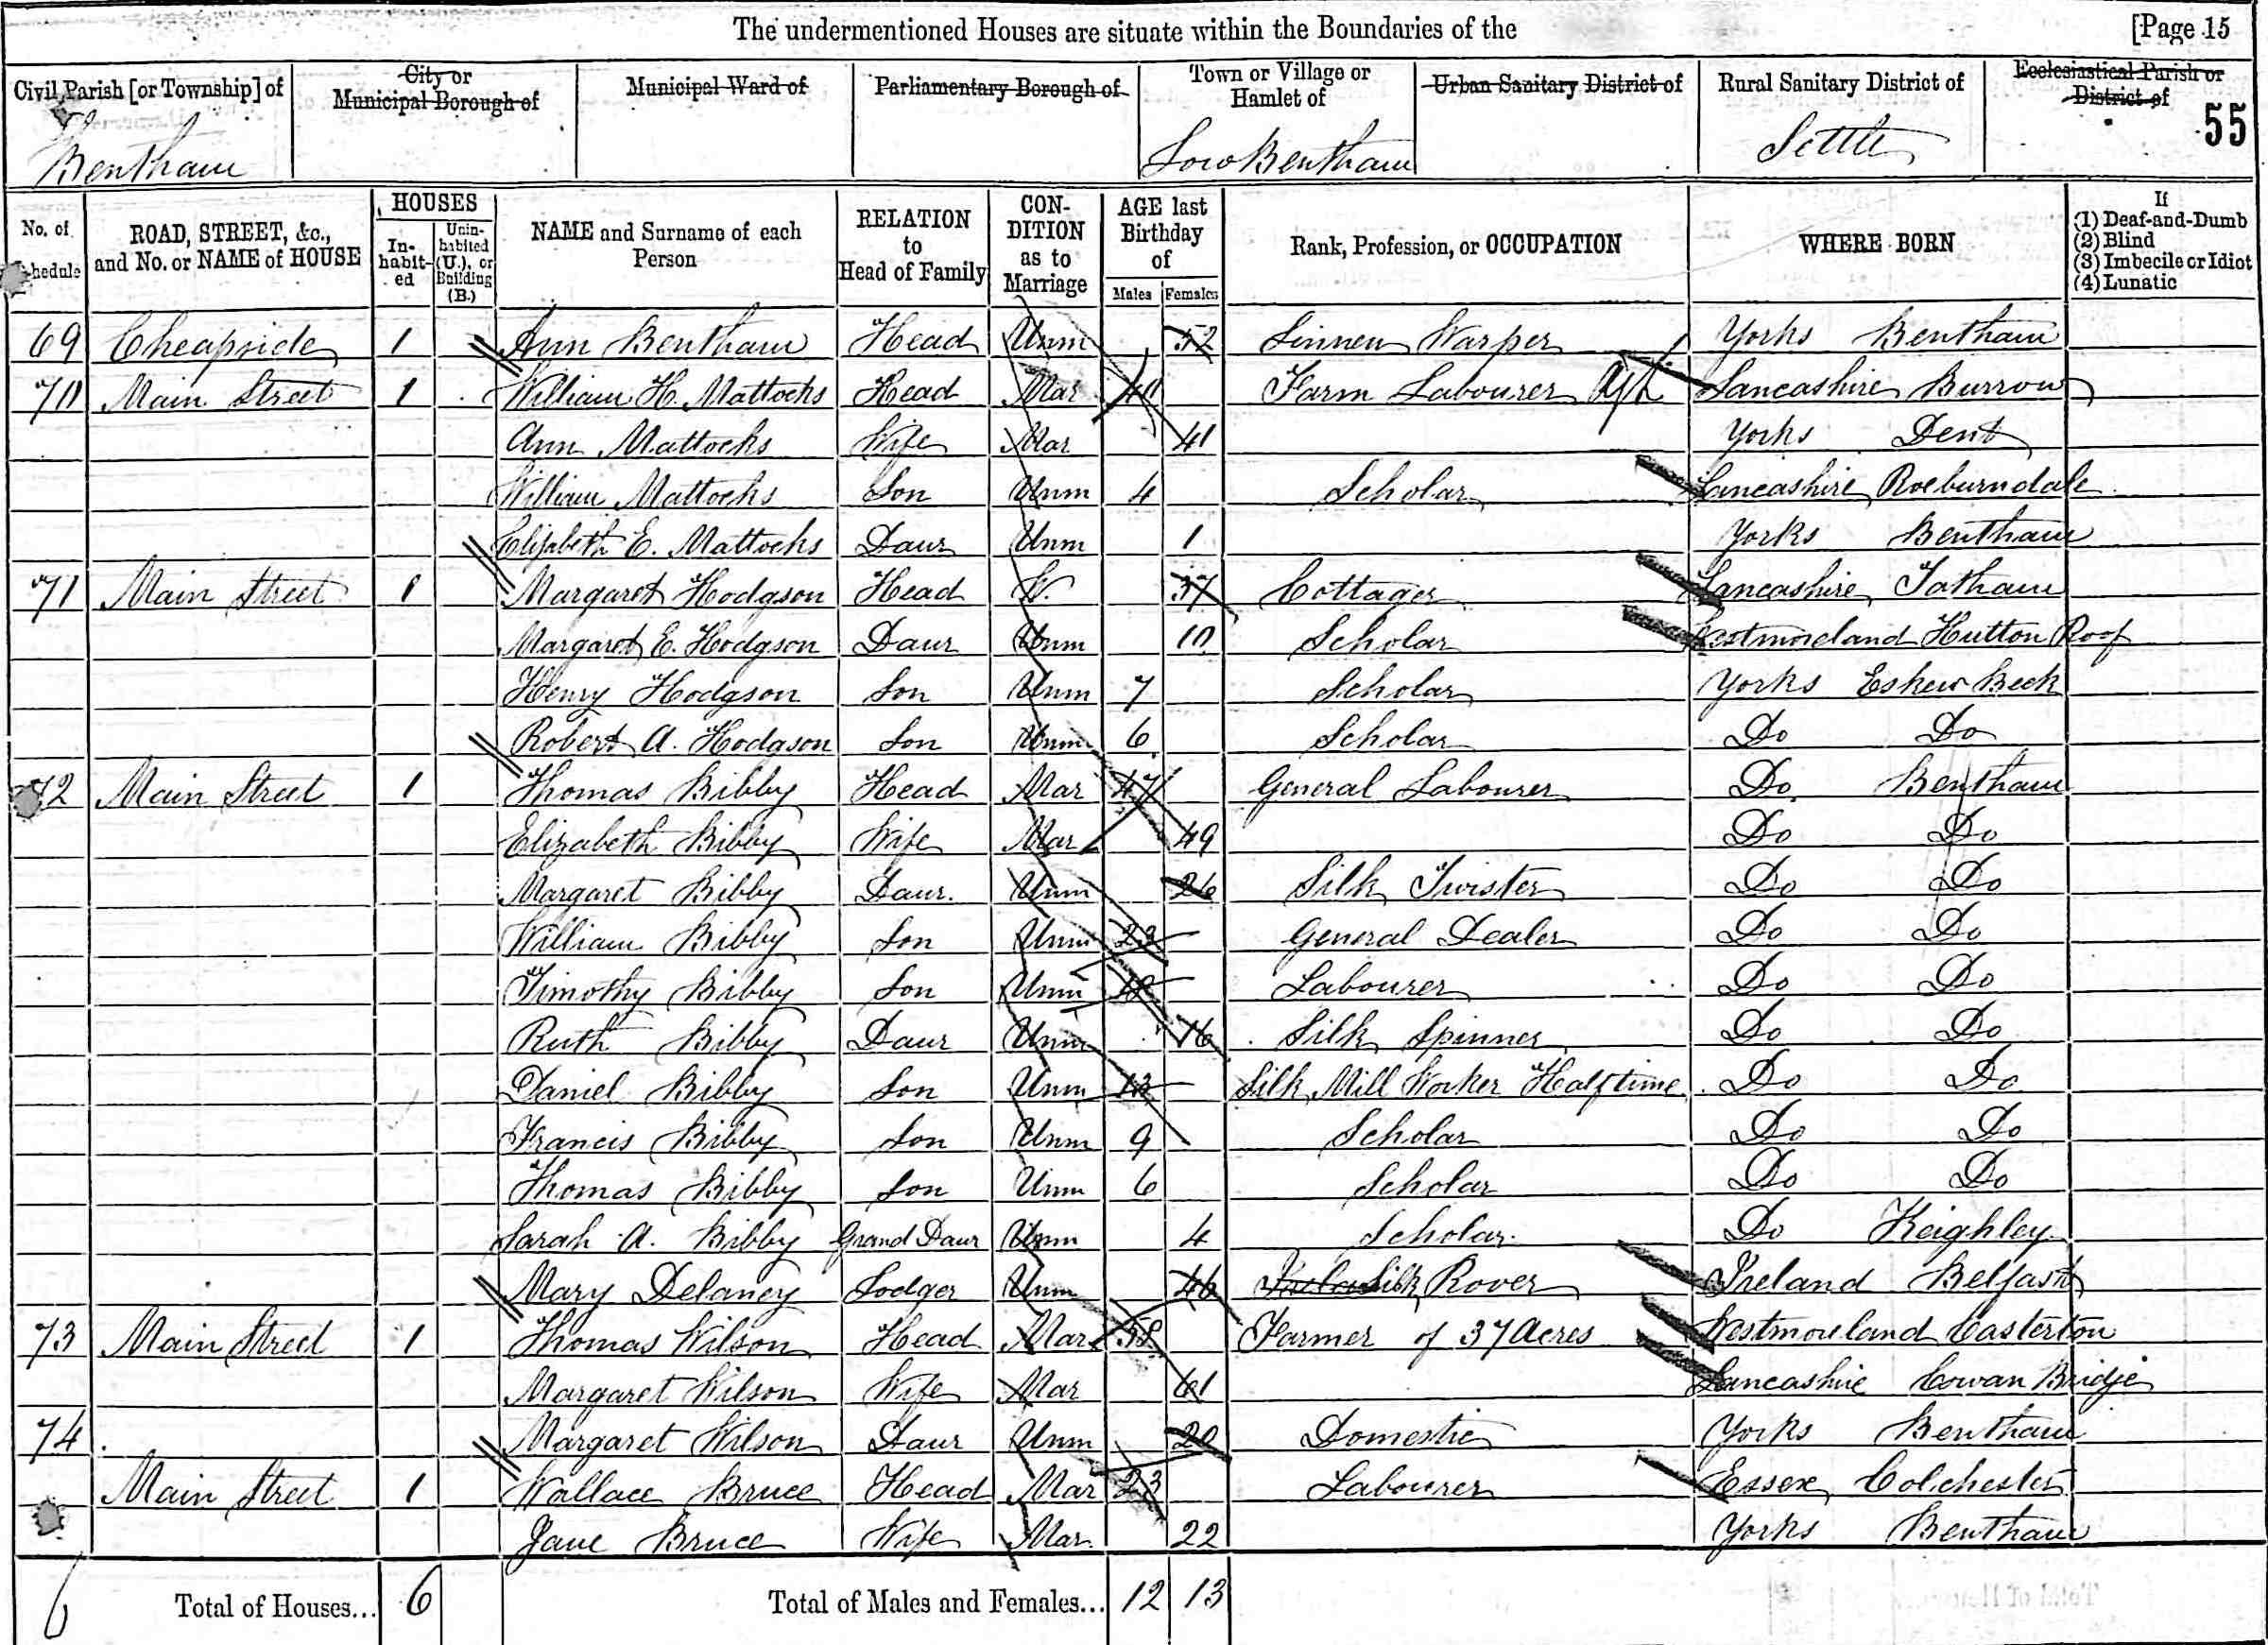 The undermentioned Houses are situate within the Boundaries of the [Page 15
Civil Parish [or Township] of
City or Municipal Borough of
Municipal Ward of
Parliamentary Borough of
Town or Village or Hamlet of
Urban Sanitary District of
Rural Sanitary District of
Ecclesiastical Parish or District of
Bentham Low Bentham Settle 55
No. of Schedule
ROAD, STREET, &c., and No. or NAME of HOUSE
HOUSES
Inhabited
Uninhabited (U.), or Building (B.)
NAME and Surname of each Person
RELATION to Head of Family
CONDITION as to Marriage
AGE last Birthday of
Males Females
Rank, Profession, or OCCUPATION
WHERE BORN
If
(1) Deaf-and-Dumb
(2) Blind
(3) Imbecile or Idiot
(4) Lunatic
69 Cheapside 1 Ann Bentham Head Unm 52 Linnen Warper Yorks Bentham
70 Main Street 1 William H. Mattocks Head Mar 41 Farm Labourer Lancashire Burrow
Ann Mattocks Wife Mar 41 Yorks Dent
William Mattocks Son Unm 4 Scholar Lancashire Roeburndale
Elizabeth E. Mattocks Daur Unm 1 Yorks Bentham
71 Main Street 1 Margaret Hodgson Head W. 37 Cottager Lancashire Tatham
Margaret E. Hodgson Daur Unm 10 Scholar Westmoreland Hutton Roof
Henry Hodgson Son Unm 7 Scholar Yorks Eskew Beck
Robert A. Hodgson Son Unm 6 Scholar Do Do
72 Main Street 1 Thomas Bibby Head Mar 47 General Labourer Do Bentham
Elizabeth Bibby Wife Mar 49 Do Do
Margaret Bibby Daur. Unm 26 Silk Twister Do Do
William Bibby Son Unm 23 General Dealer Do Do
Timothy Bibby Son Unm 18 Labourer Do Do
Ruth Bibby Daur Unm 16 Silk Spinner Do Do
Daniel Bibby Son Unm 12 Silk Mill Worker Halftime Do Do
Francis Bibby Son Unm 9 Scholar Do Do
Thomas Bibby Son Unm 6 Scholar Do Do
Sarah A. Bibby Grand Daur Unm 4 Scholar Do Keighley
Mary Delaney Lodger Unm 46 Silk Rover Ireland Belfast
73 Main Street 1 Thomas Wilson Head Mar 58 Farmer of 37 Acres Westmoreland Casterton
Margaret Wilson Wife Mar 61 Lancashire Cowan Bridge
74 Margaret Wilson Daur Unm 20 Domestic Yorks Bentham
Main Street 1 Wallace Bruce Head Mar 23 Labourer Essex Colchester
Jane Bruce Wife Mar. 22 Yorks Bentham
6 Total of Houses... 6 Total of Males and Females... 12 13